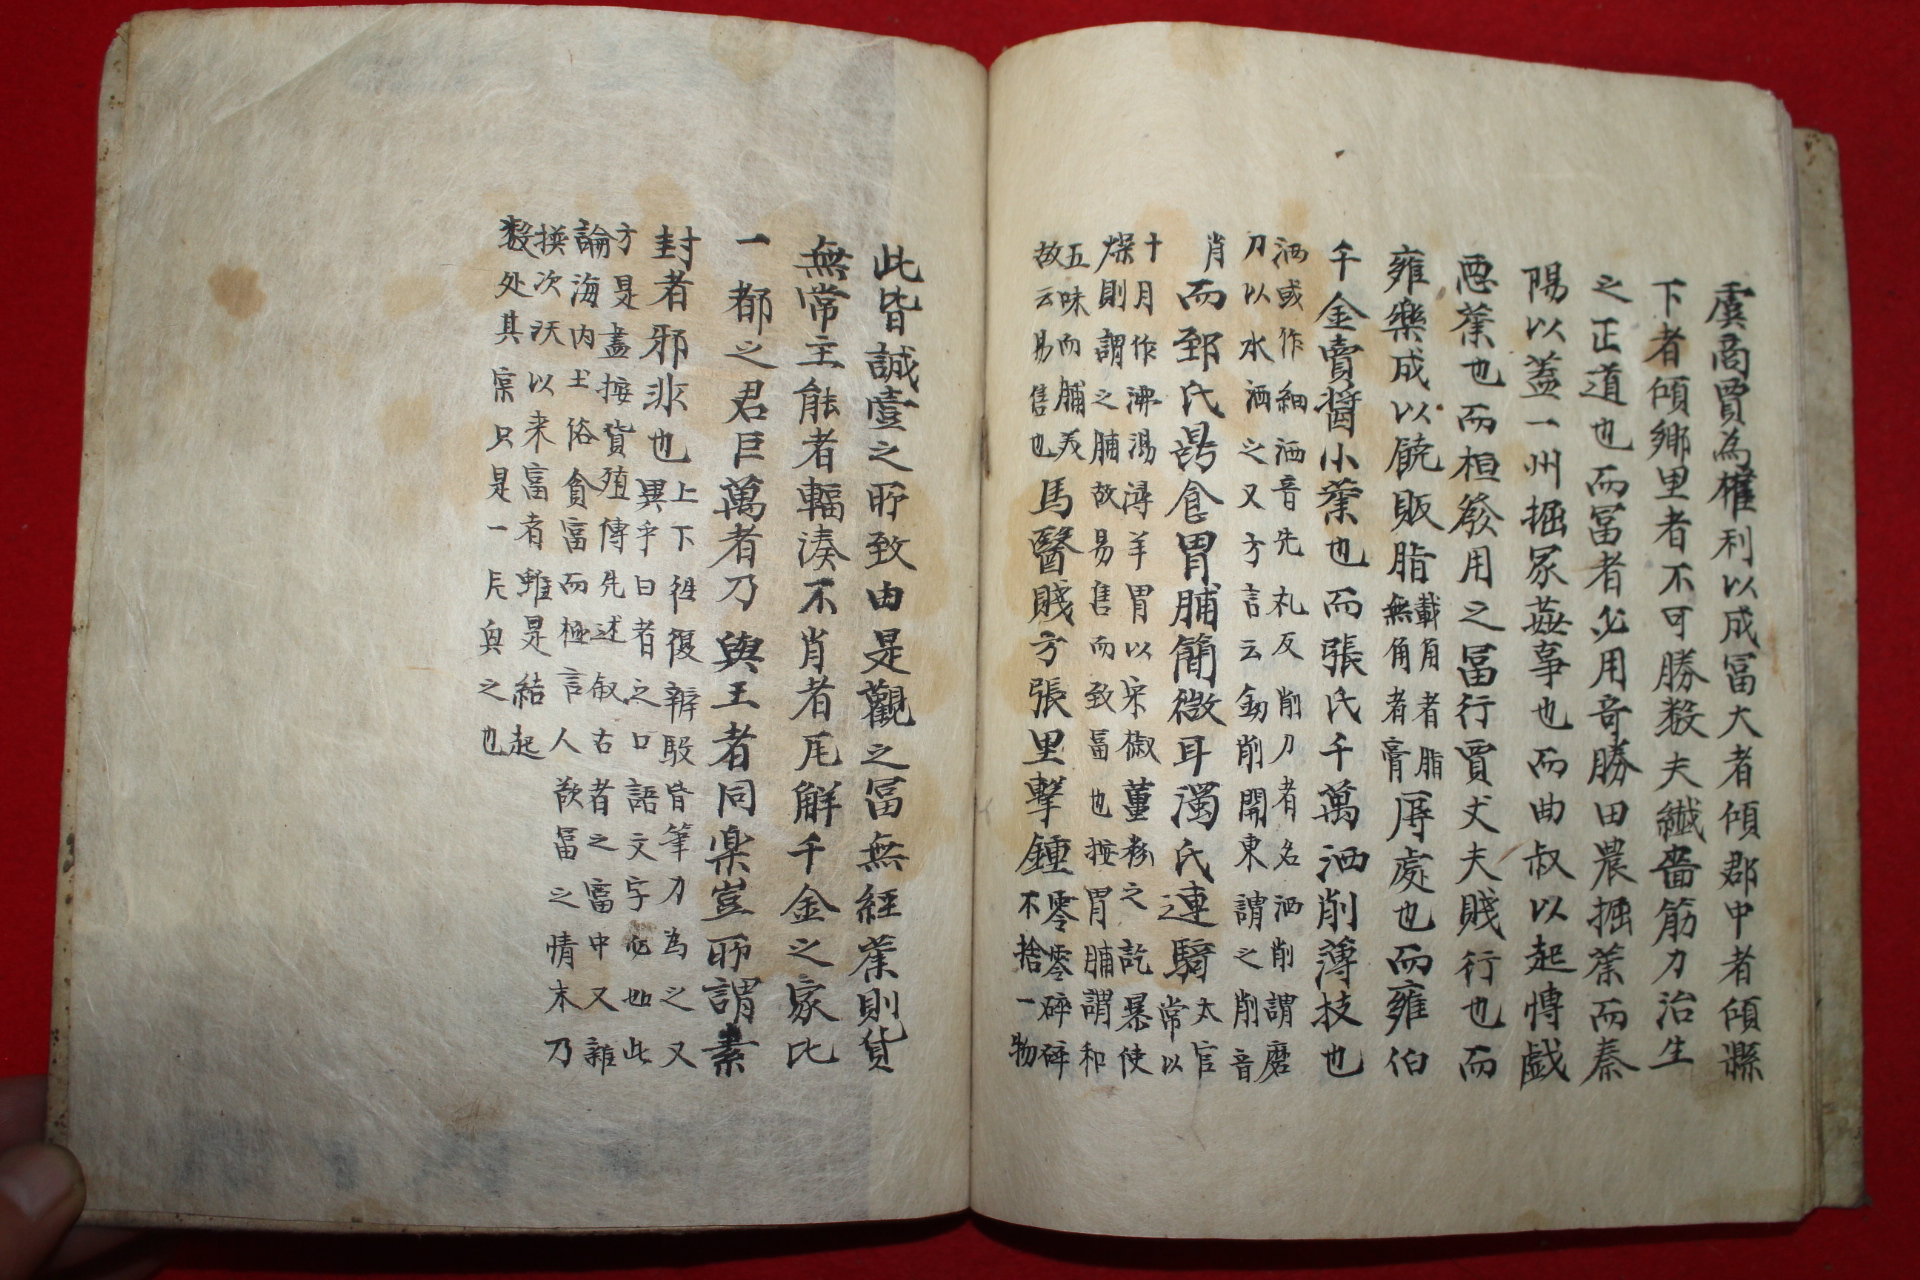 虞商賈為權利以成冨大者傾郡中者傾縣
下者傾郷里者不可勝数夫纎嗇筋力治生
之正道也而冨者必用竒勝田農掘業而秦
陽以盖一州掘冢姦事也而曲叔以起慱戯
悪業也而桓發用之冨行賈丈夫賤行也而
雍樂成以饒販脂
載角者脂
無角者膏
辱處也而雍伯
千金賣醬小業也而張氏千萬洒削薄技也
洒或作細洒音先礼反削刀者名洒削謂磨
刀以水洒之又方言云劒削開東謂之削音
肖
而郅氏鼎食胃脯簡微耳濁氏連騎
太官
常以
十月作沸湯潯羊胃以宋椒薑粉之訖暴使
燥則謂之脯故易售而致冨也按胃脯謂和
五味而脯美
故云易售也
馬醫賤方張里擊鍾
零零碎碎
不捨一物
此皆誠壹之所致由是觀之冨無經業則貨
無常主能者輻湊不肖者瓦解千金之家比
一都之君巨萬者乃與王者同楽豈所謂素
封者邪非也
上下徃復辨駁皆筆力為之又
異乎日者之口語文字必如此
方是盡按貨殖傳先述叙古者之富中又雜
論海内土俗貪富而極言人歆冨之情末乃
摸次沃以来富者雖是結起
数处其宲只是一片臾之也